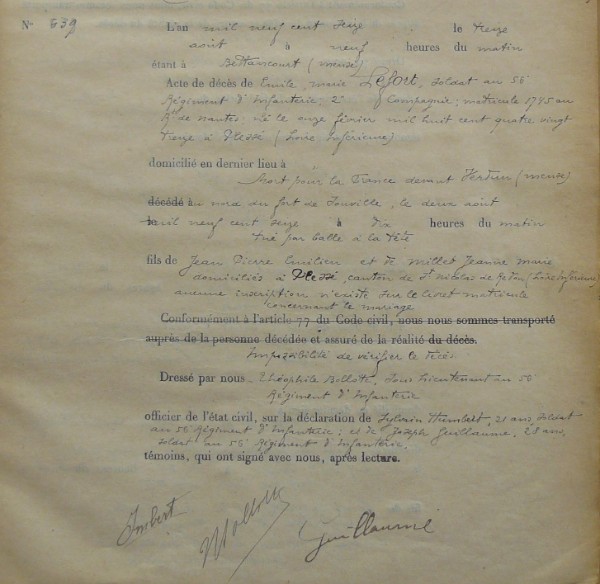 N° 639 L'an mil neuf cent seize le treize
août à neuf heures du matin
étant à Bettancourt (meuse)
Acte de décès de Emile, marie Lefort, soldat au 56e
Régiment d'Infanterie; 2e Compagnie; matricule 1795 au
Rt de nantes. Né le onze février mil huit cent quatre vingt
treize à Plessé (Loire Inférieure)
domicilié en dernier lieu à
Mort pour la France devant Verdun (meuse)
décédé au nord du fort de Souville, le deux août
le mil neuf cent seize à dix heures du matin
tué par balle à la tête
fils de Jean Pierre Emilien et de Millet Jeanne marie
domiciliés à Plessé, canton de St Nicolas de Redon (Loire Inférieure)
aucune inscription n'existe sur le livret matricule
concernant le mariage
Conformément à l'article 77 du Code civil, nous nous sommes transporté
auprès de la personne décédée et assuré de la réalité du décès.
Impossibilité de vérifier le décès
Dressé par nous Théophile Sous Lieutenant au 56
Régiment d'Infanterie
officier de l'état civil, sur la déclaration de Sylvain Humbert, 21 ans, soldat
au 56 Régiment d'Infanterie; et de Joseph Guillaume, 28 ans,
soldat au 56 Régiment d'Infanterie,
témoins, qui ont signé avec nous, après lecture.
Guillaume